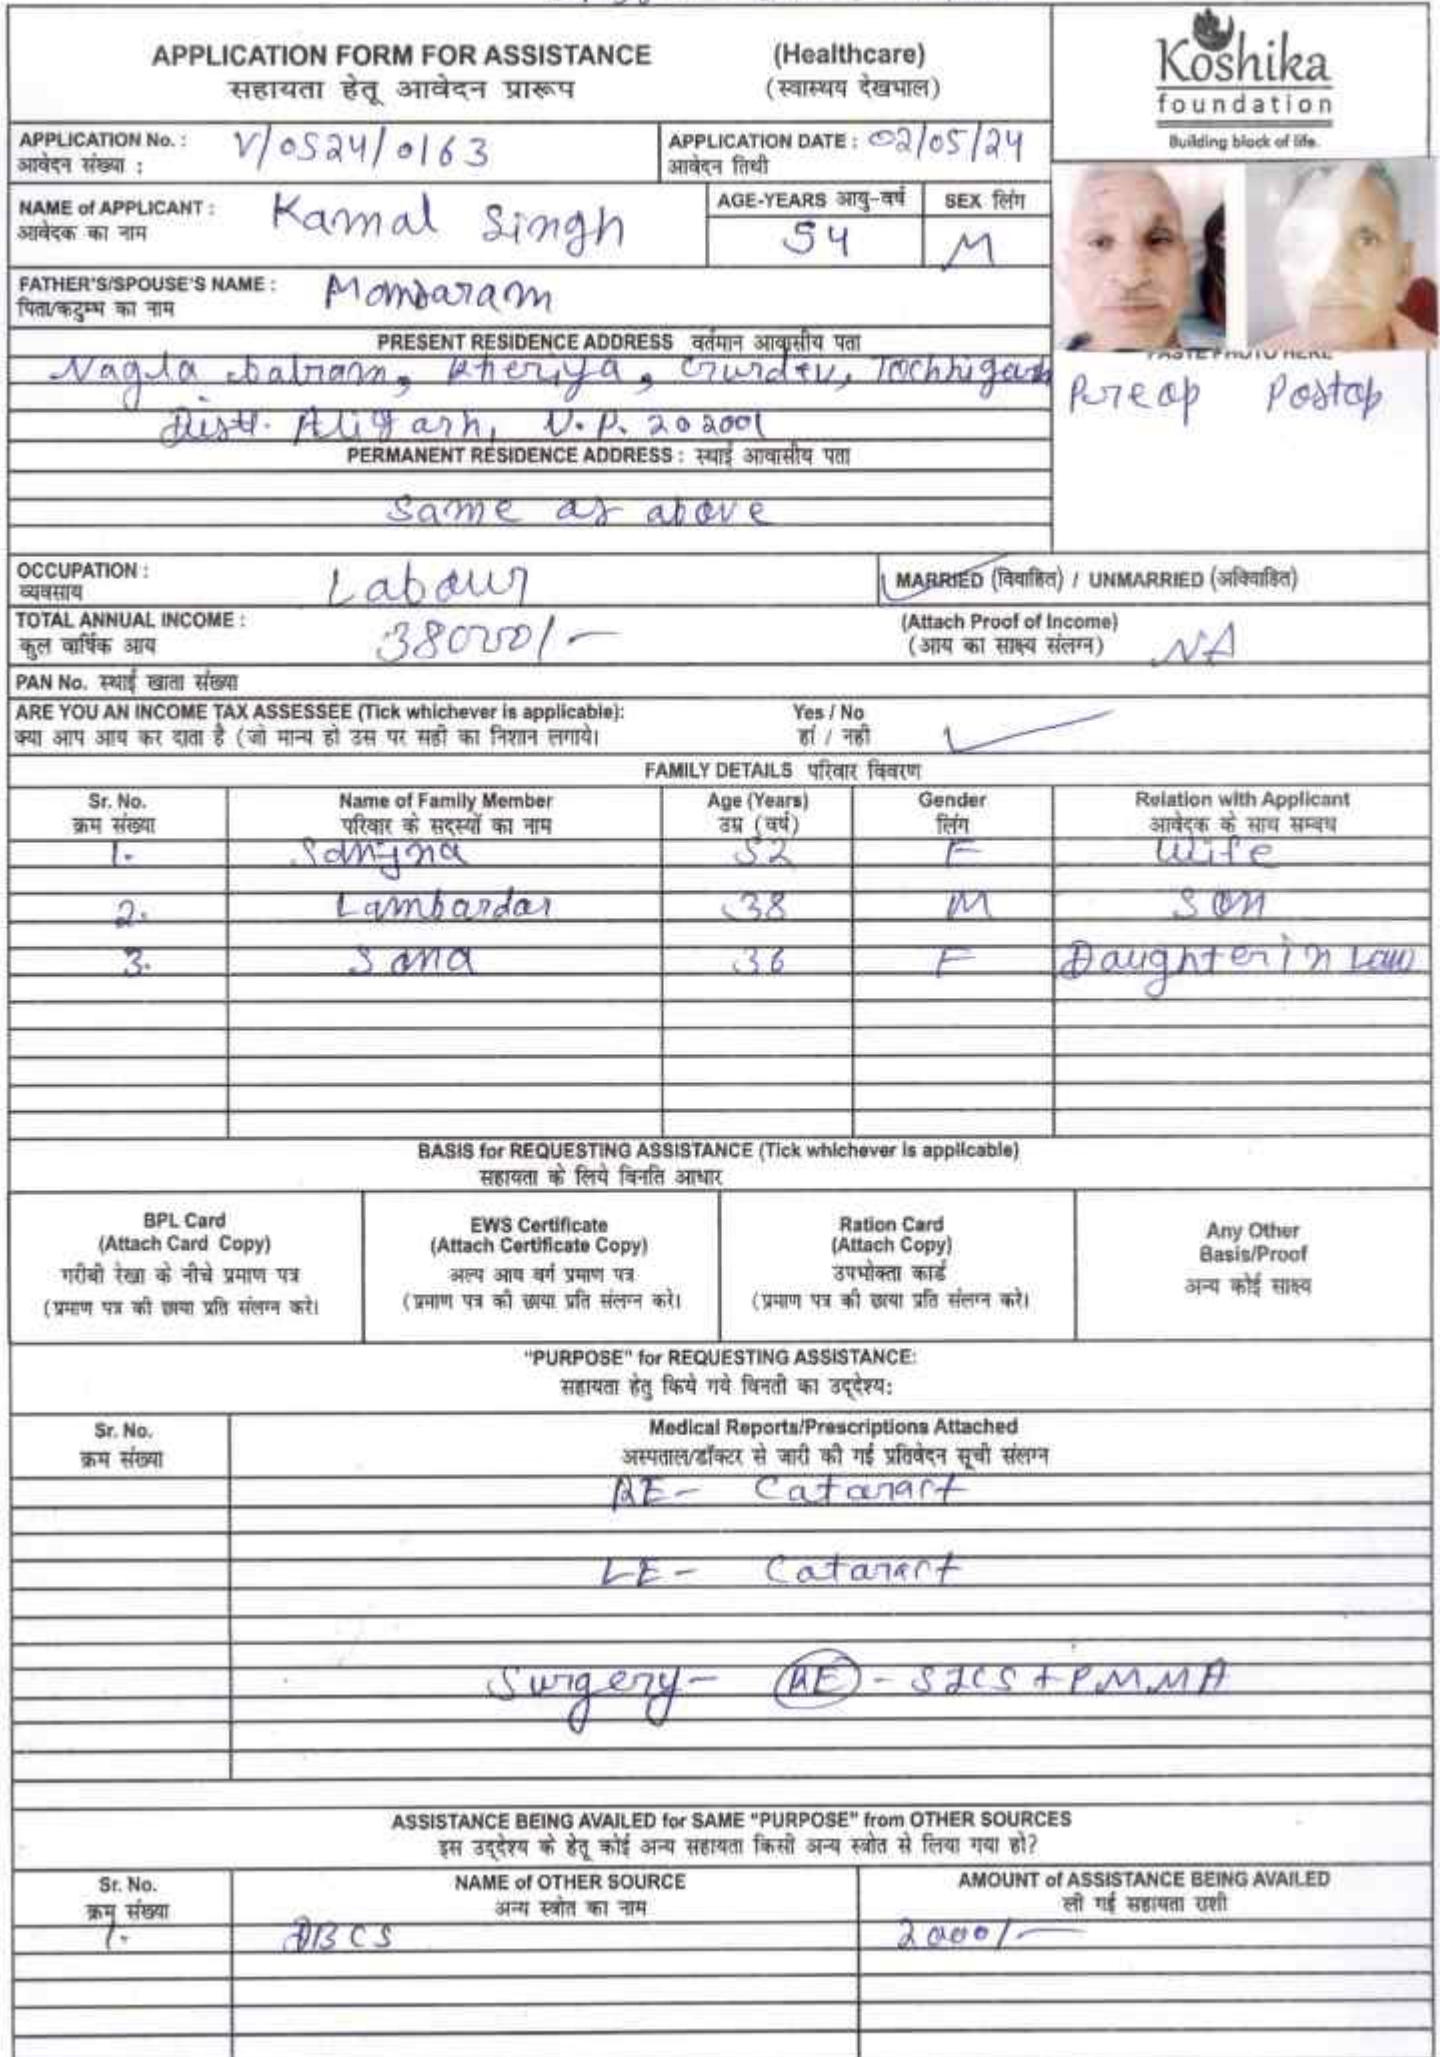 APPLICATION FORM FOR ASSISTANCE (Healthcare)
सहायता हेतू आवेदन प्रारूप (स्वास्थय देखभाल)
Koshika
foundation
Building block of life.
APPLICATION No. : V/0524/0163
आवेदन संख्या :
APPLICATION DATE : 02/05/24
आवेदन तिथी
NAME of APPLICANT : Kamal Singh
आवेदक का नाम
AGE-YEARS आयु-वर्ष
54
SEX लिंग
M
FATHER'S/SPOUSE'S NAME :
पिता/कटुम्भ का नाम
PASTE PHOTO HERE
Preop Postop
PRESENT RESIDENCE ADDRESS वर्तमान आवासीय पता
Nagla Kheriya,
Distt. Aligarh, U.P. 202001
PERMANENT RESIDENCE ADDRESS : स्थाई आवासीय पता
Same as above
OCCUPATION : Labour
व्यवसाय
MARRIED (विवाहित) / UNMARRIED (अविवाहित)
TOTAL ANNUAL INCOME : 38000/-
कुल वार्षिक आय
(Attach Proof of Income)
(आय का साक्ष्य संलग्न) NA
PAN No. स्थाई खाता संख्या
ARE YOU AN INCOME TAX ASSESSEE (Tick whichever is applicable): Yes / No
क्या आप आय कर दाता है (जो मान्य हो उस पर सही का निशान लगाये। हां / नही
FAMILY DETAILS परिवार विवरण
Sr. No. Name of Family Member Age (Years) Gender Relation with Applicant
क्रम संख्या परिवार के सदस्यों का नाम उम्र (वर्ष) लिंग आवेदक के साथ सम्बध
1. 52 F Wife
2. Lambardar 38 M Son
3. Sona 36 F Daughter in Law
BASIS for REQUESTING ASSISTANCE (Tick whichever is applicable)
सहायता के लिये विनति आधार
BPL Card
(Attach Card Copy)
गरीबी रेखा के नीचे प्रमाण पत्र
(प्रमाण पत्र की छाया प्रति संलग्न करे।
EWS Certificate
(Attach Certificate Copy)
अल्प आय वर्ग प्रमाण पत्र
(प्रमाण पत्र की छाया प्रति संलग्न करे।
Ration Card
(Attach Copy)
उपभोक्ता कार्ड
(प्रमाण पत्र की छाया प्रति संलग्न करे।
Any Other
Basis/Proof
अन्य कोई साक्ष्य
"PURPOSE" for REQUESTING ASSISTANCE:
सहायता हेतु किये गये विनती का उद्देश्य:
Sr. No. Medical Reports/Prescriptions Attached
क्रम संख्या अस्पताल/डॉक्टर से जारी की गई प्रतिवेदन सूची संलग्न
RE- Cataract
LE- Cataract
Surgery- RE - SICS + PMMA
ASSISTANCE BEING AVAILED for SAME "PURPOSE" from OTHER SOURCES
इस उद्देश्य के हेतू कोई अन्य सहायता किसी अन्य स्त्रोत से लिया गया हो?
Sr. No. NAME of OTHER SOURCE AMOUNT of ASSISTANCE BEING AVAILED
क्रम संख्या अन्य स्त्रोत का नाम ली गई सहायता राशी
1. DBCS 2000/-